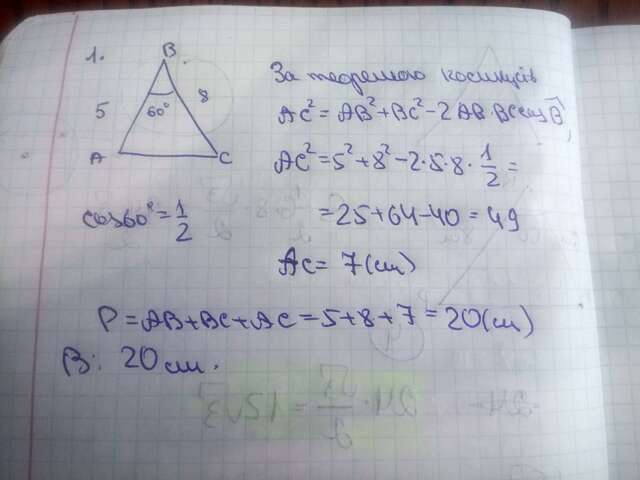 1.
B
5
60°
8
A
C
За теоремою косинусів
AC² = AB² + BC² - 2AB·BC cos B,
AC² = 5² + 8² - 2·5·8·1/2 =
cos60° = 1/2
= 25 + 64 - 40 = 49
AC = 7 (см)
P = AB + BC + AC = 5 + 8 + 7 = 20 (см)
В: 20 см.